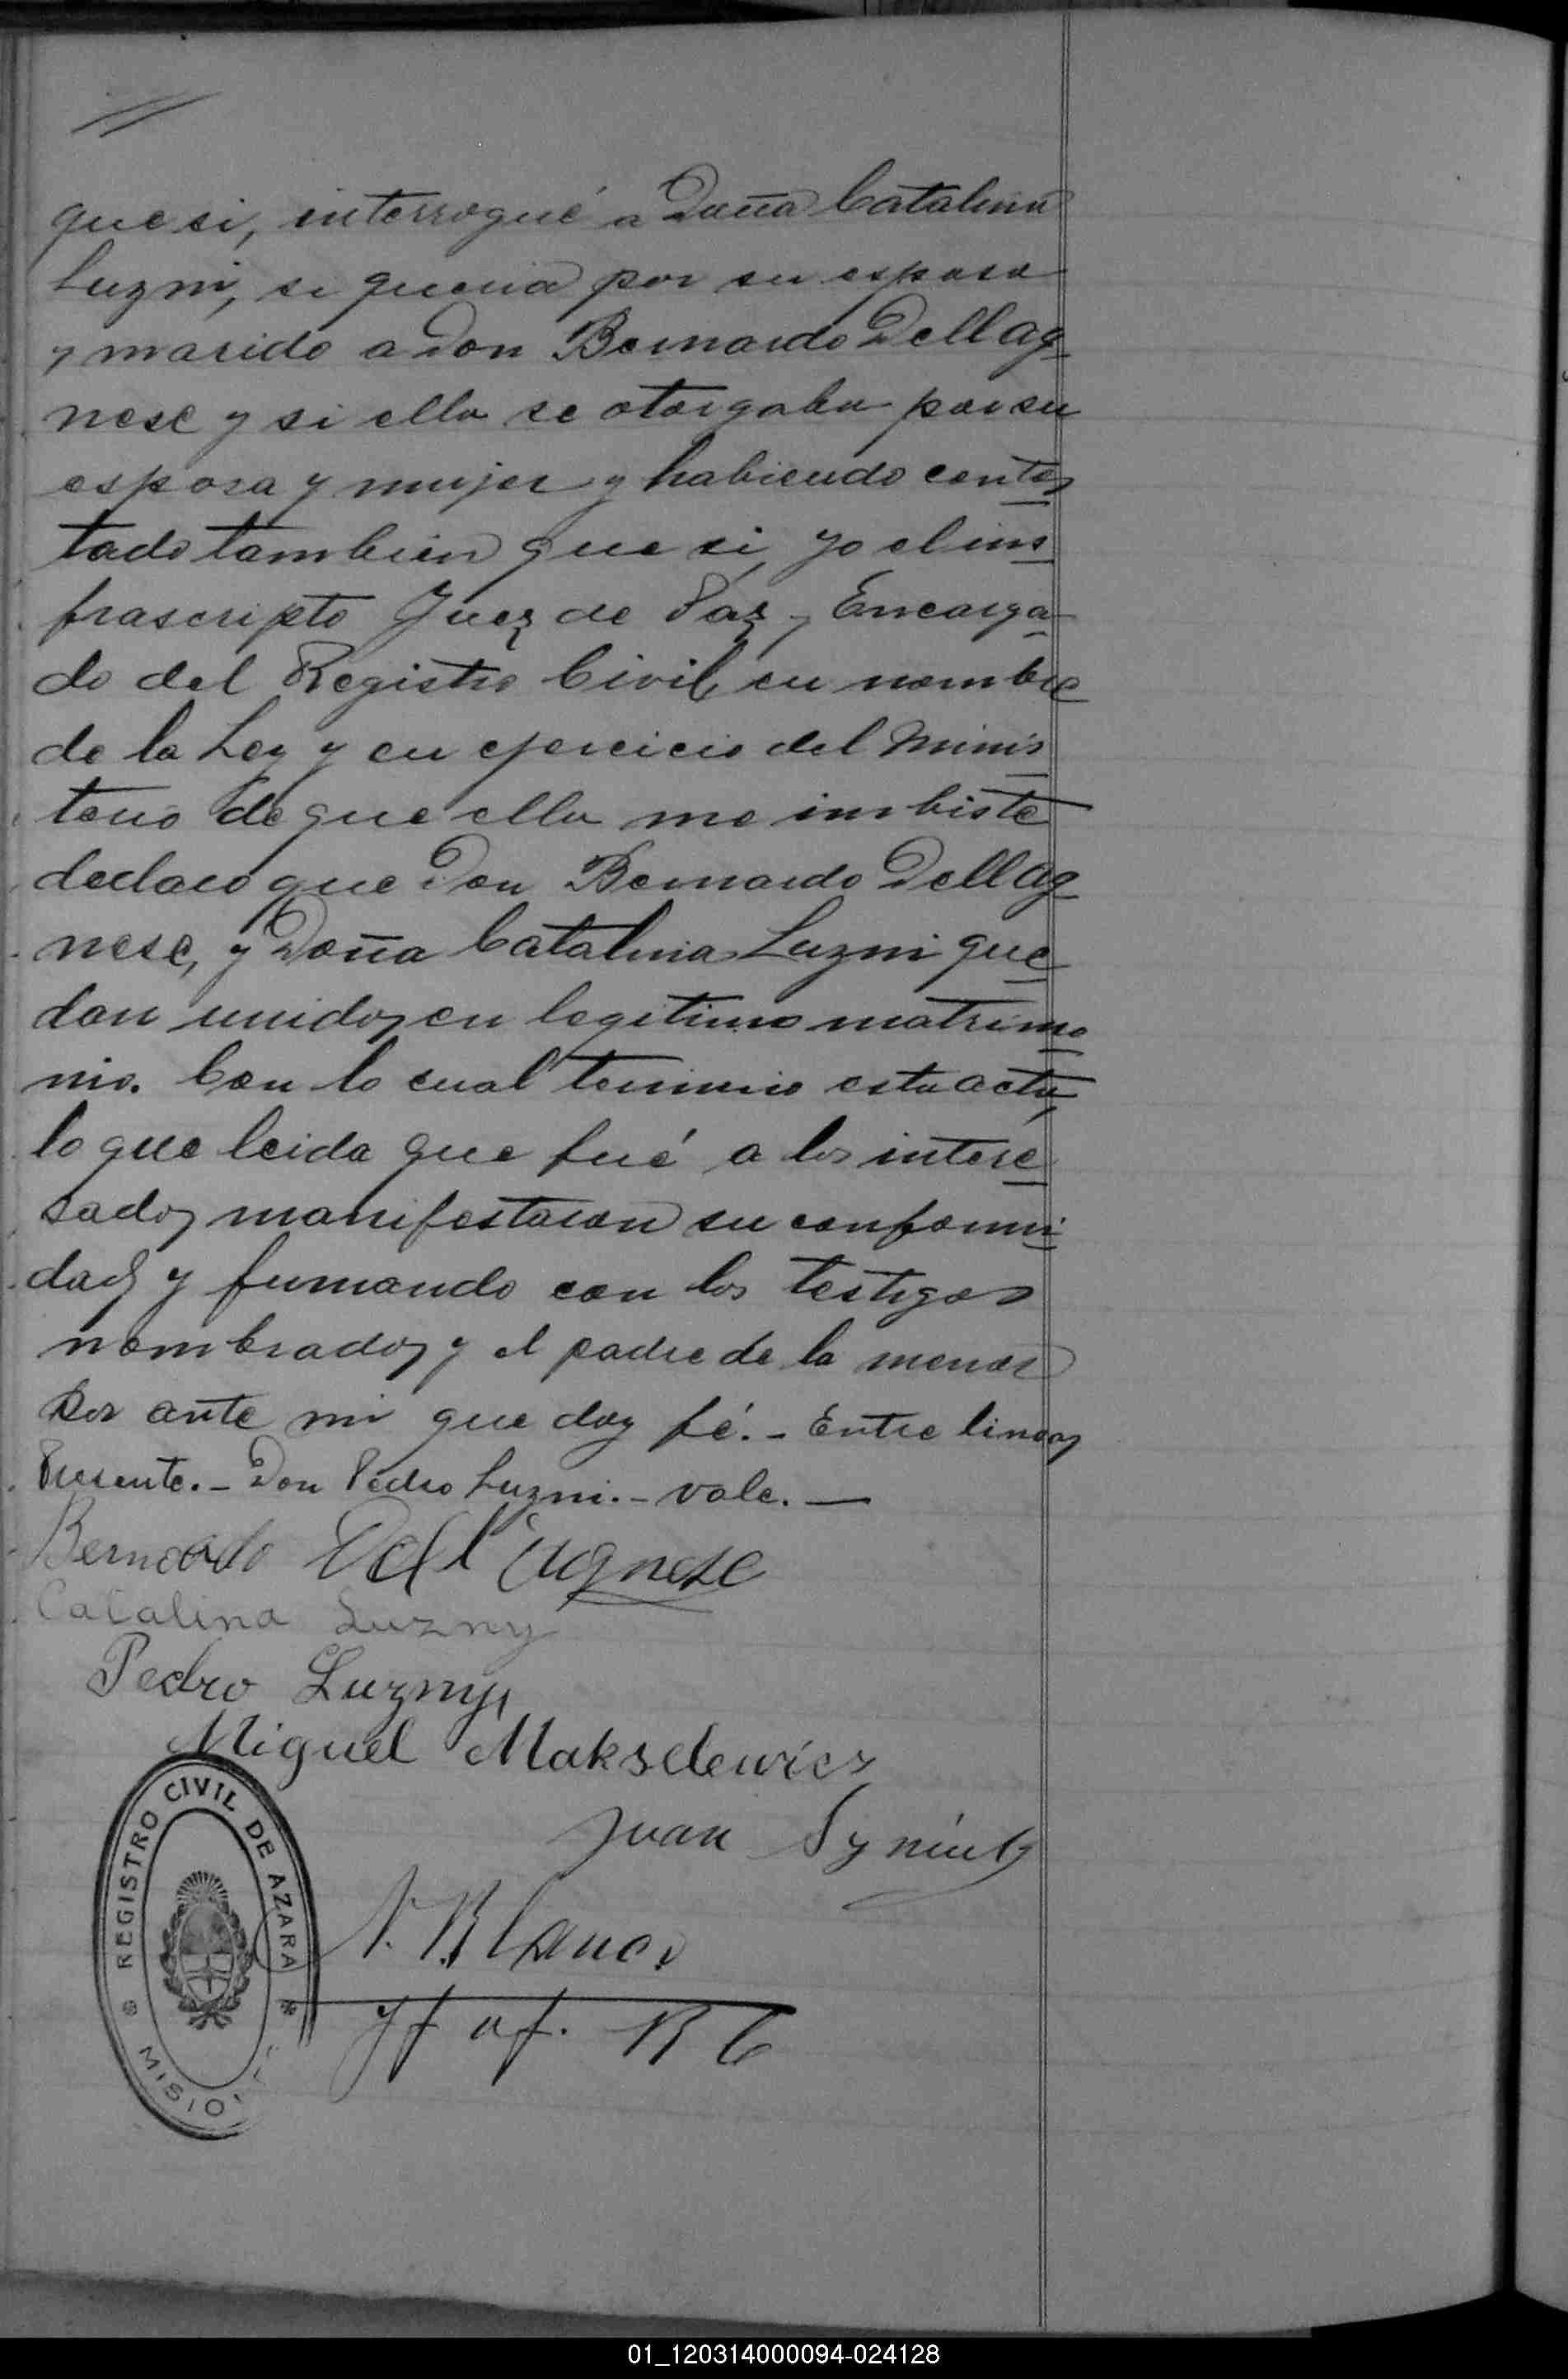 que si, interrogué a Doña Catalina
Luzni, si queria por su esposo
y marido a Don Bernardo Dellag
nese y si ella se otorgaba por su
esposa y mujer y habiendo contes
tado tambien que si, yo el ins
frascripto Juez de Páz y Encarga
do del Registro Civil en nombre
de la Ley y en ejercicio del Minis
terio de que ella me imbiste
declaro que Don Bernardo Dellag
nese, y Doña Catalina Luzni que
dan unidos en legitimo matrimo
nio. Con lo cual termino esta acta,
lo que leida que fué a los intere
sados manifestaron su conformi
dad y firmando con los testigos
nombrados y el padre de la menor
por ante mi que doy fé. - Entre lineas
Presente. - Don Pedro Luzni. - vale. —
Bernardo Dell'agnese
Catalina Luzny
Pedro Luzny
Miguel Makselewicz
Juan
N. Blanco
REGISTRO CIVIL DE AZARA
MISIO
Jf of. R C
01_120314000094-024128